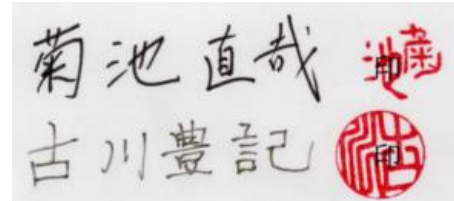 菊池直哉 印 菊池
古川豊記 印 古川